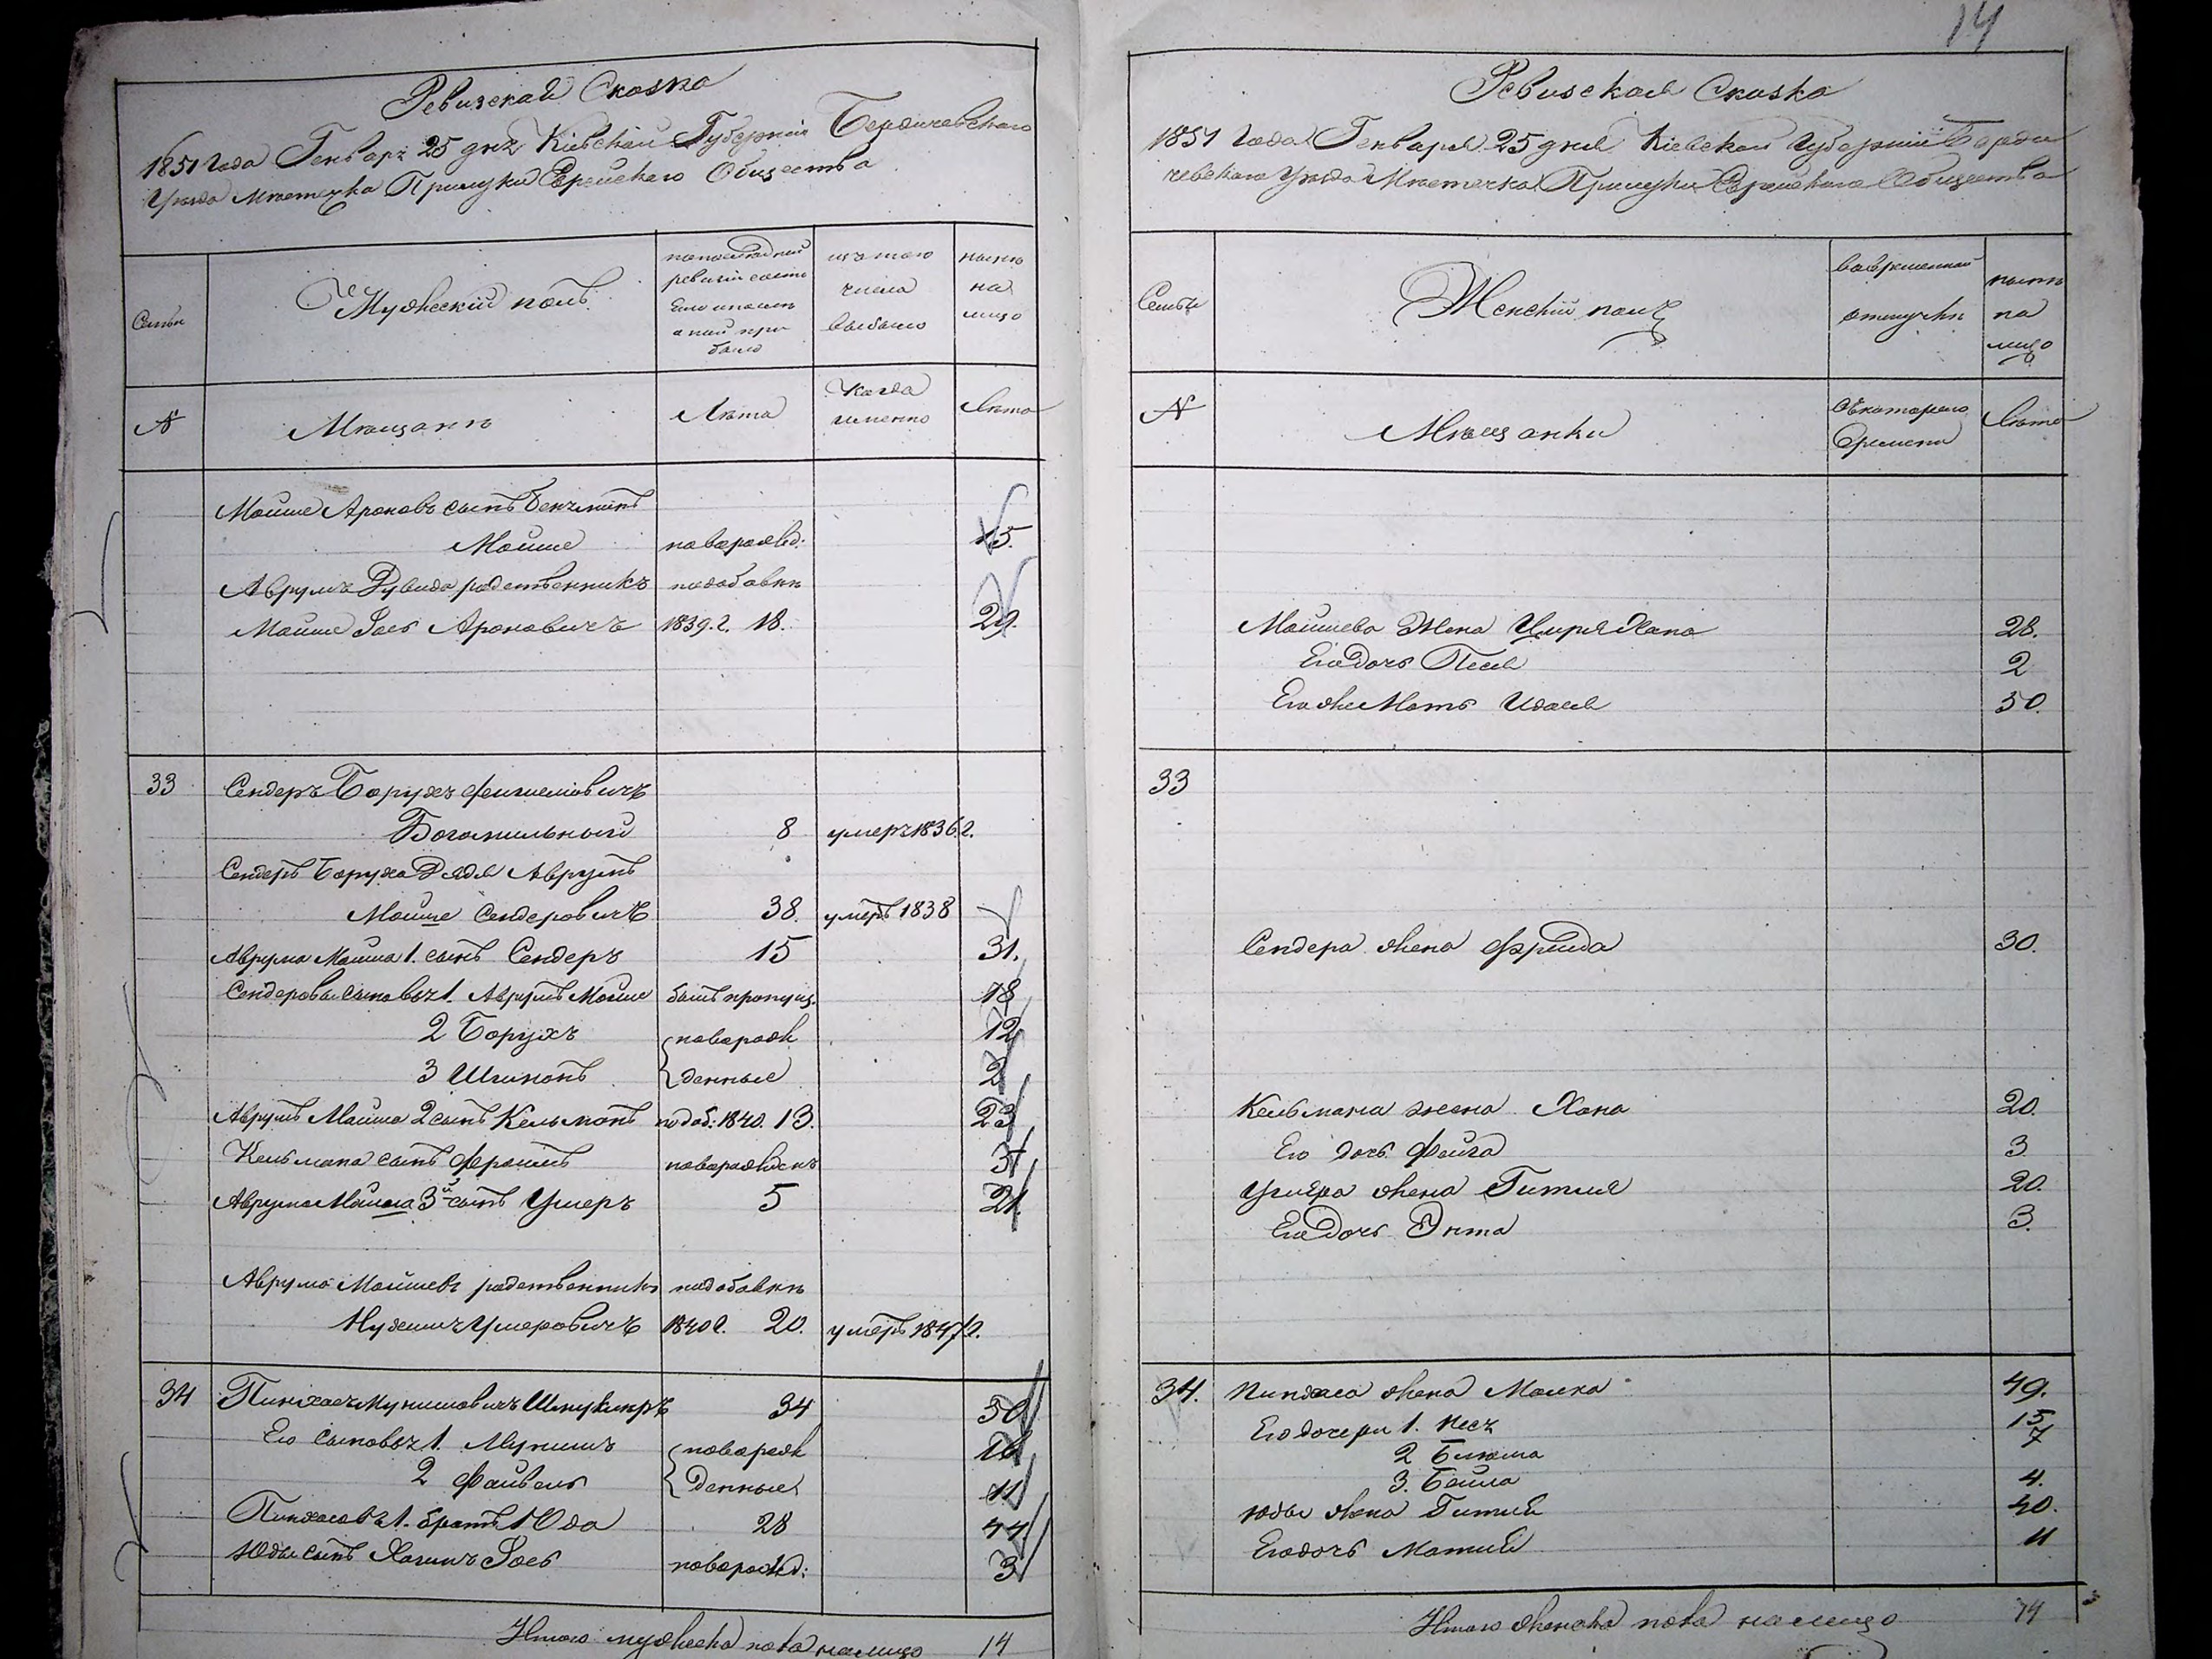 Ревизская Сказка
1851 Года Генваря 25 дня Кіевской Губерніи Бердичевскаго
Уѣзда Мѣстечка Прилуки Еврейскаго Общества
Семьи
Мужескій полъ
по последней
ревизіи состо
было
изъ того
числа
выбыло
нынѣ
на
лицо
№
Мещанѣ
Лѣта
Когда
именно
Лѣта
Мойше Ароновъ сынъ Бенъминъ
Мойше
новорожд:
15.
Аврумъ Дувида родственникъ
подобавкѣ
Мойше Іось Ароновичъ
1839.г. 18.
29.
33
Сендеръ Борухъ
8
умеръ 1836.г.
Сендеръ Боруха Дядя Аврумъ
Мойше Сендеровичъ
38.
умеръ 1838
Аврума Мойша 1. сынъ Сендеръ
15
31.
Сендеровы сыновья 1. Аврумъ Мойше
былъ пропущ.
18
2 Борухъ
новорож
12
3 Шимонъ
денные
2
Аврумъ Мойша 2 сынъ Кельманъ
по доб: 1840. 13.
23
Кельмана сынъ Фроимъ
новорожденъ
Аврума Мойша 3й сынъ Ушеръ
5
21.
Аврума Мойшевъ родственникъ
подобавкѣ
Ушеровичъ
1840г. 20.
умеръ 1847г.
34
Пинхасъ Мунишовичъ
34
50
Его сыновья 1. Мунишъ
новорож
16
2 Файвель
денные
11
Пинхасовъ 1. братъ Юда
28
44
Юды сынъ Хаимъ Іось
новорожд:
3
Итого мужеска пола налицо 14
14
Ревизская Сказка
1851 Года Генваря 25 дня Кіевской Губерніи Берди
чевскаго Уѣзда Мѣстечка Прилуки Еврейскаго Общества
Семьи
Женскій полъ
вовременной
отлучкѣ
нынѣ
на
лицо
№
Мѣщанки
Съкотораго
Времени
Лѣта
Мойшева Жена Ципра Хана
28.
Его Дочь Песя
2
Его же Мать
50.
33
Сендера жена Фрейда
30.
Кельмана жена Хана
20.
Его дочь Фейга
3
Ушера жена Гитля
20.
Его Дочь Энта
3.
34.
Пинхаса жена Малка
49.
Его дочери 1. Песя
15
2
7
3. Бейла
4.
Юды жена Гитля
40.
Его дочь Матля
11
Итого женска пола налицо 14